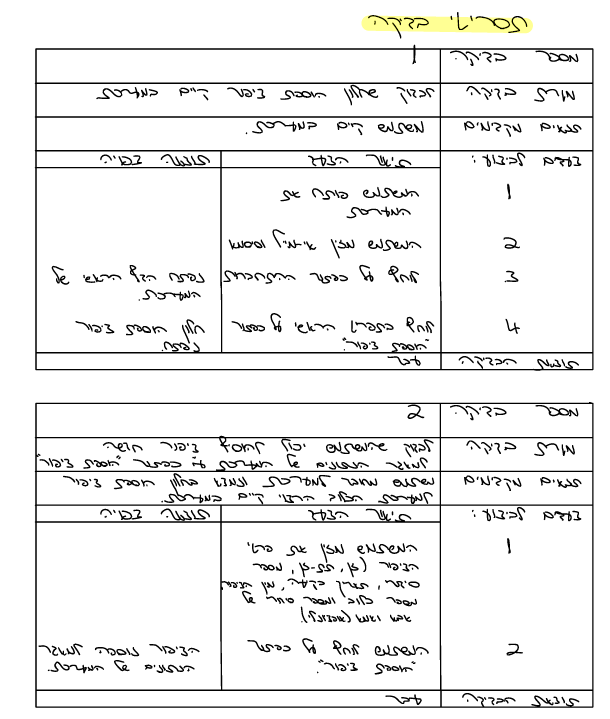 תסריטי בדיקה
מספר בדיקה 1
מטרת בדיקה לבדוק שחלון הוספת ציפור קיים במערכת
תנאים מקדימים משתמש קיים במערכת.
צעדים לביצוע: תיאור הצעד תוצאה צפויה
1 המשתמש פותח את
המערכת
2 המשתמש מזין אימייל וססמא
3 לוחץ על כפתור ההתחברות נפתח הדף הראשי של
המערכת.
4 לוחץ בתפריט הראשי על כפתור חלון הוספת ציפור
"הוספת ציפור". נפתח.
תוצאת הבדיקה עבר
מספר בדיקה 2
מטרת בדיקה לבדוק שהמשתמש יכול להוסיף ציפור חדשה
למאגר הנתונים של המערכת ע"י כפתור "הוספת ציפור"
תנאים מקדימים משתמש מחובר למערכת ונמצא בחלון הוספת ציפור
למערכת הכלוב הרצוי קיים במערכת.
צעדים לביצוע: תיאור הצעד תוצאה צפויה
1 המשתמש מזין את פרטי
הציפור (זן, תת-זן, מספר
סידורי, תאריך בקיעה, מין הציפור,
מספר כלוב ומספר סידורי של
אבא ואמא (אופציונלי).
2 המשתמש לוחץ על כפתור הציפור נוספה למאגר
"הוספת ציפור". הנתונים של המערכת.
תוצאת הבדיקה עבר